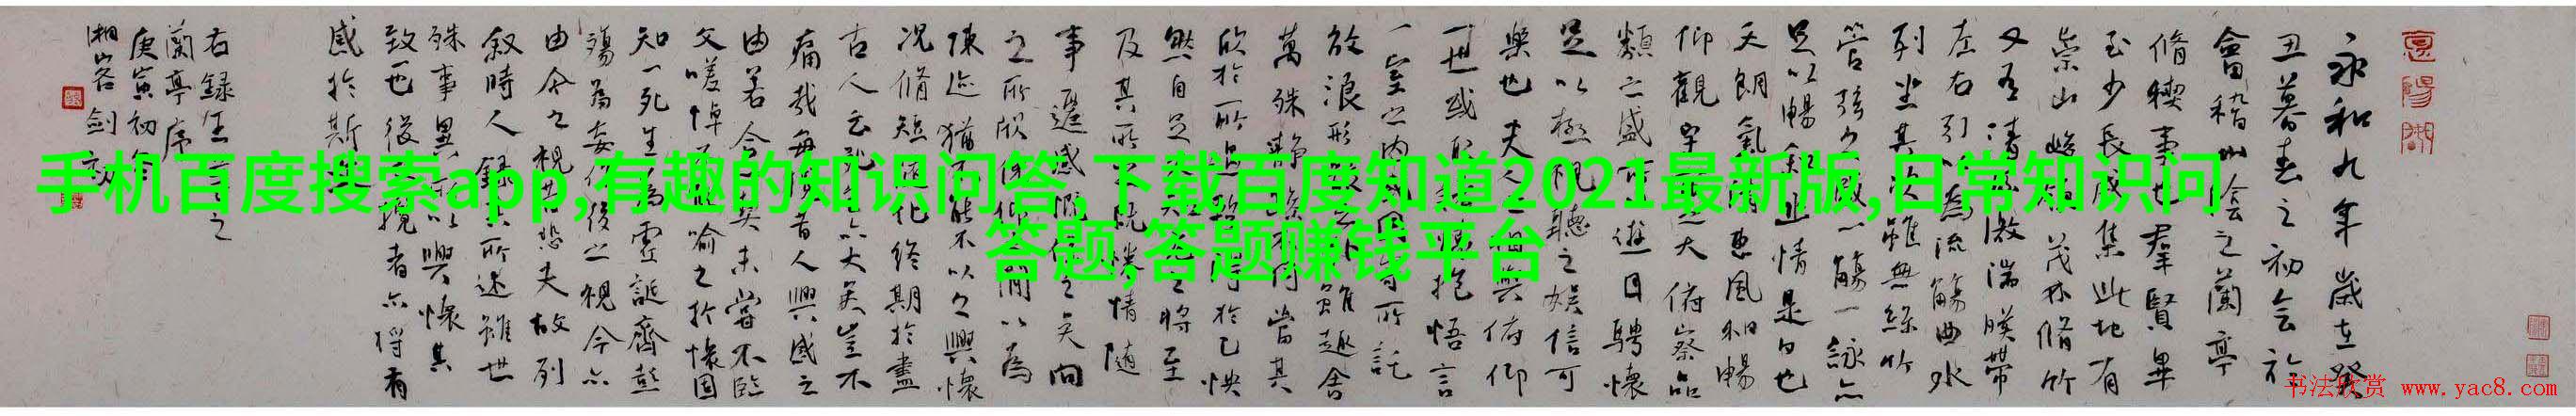 手机百度搜索app,有趣的知识问答,下载百度知道2021最新版,日常知识问
答题,答题赚钱平台
永和九年歲在癸
丑暮春之初會於
會稽山陰之蘭亭
脩禊事也羣賢畢
至少長咸集此地有
崇山峻領茂林脩竹
又有清流激湍暎帶
左右引以為流觴曲水
列坐其次雖無絲竹
管弦之盛一觴一詠亦
足以暢敘幽情是日也
天朗氣清惠風和暢
仰觀宇宙之大俯察品
類之盛所以遊目騁懷
足以極視聽之娛信可
樂也夫人之相與俯仰
一世或取諸懷抱悟言
一室之內或因寄所託
放浪形骸之外雖趣舍
萬殊靜躁不同當其
欣於所遇暫得於己怏
然自足不知老之將至
及其所之既惓情隨
事遷感慨係之矣向
之所欣俛仰之間以為
陳迹猶不能不以之興懷
況脩短隨化終期於盡
古人云死生亦大矣豈不
痛哉每攬昔人興感之
由若合一契未嘗不臨
文嗟悼不能喻之於懷固
知一死生為虛誕齊彭
殤為妄作後之視今亦
由今之視昔悲夫故列
叙時人録其所述雖世
殊事異所以興懷其
致一也後之攬者亦將有
感於斯
右録王之
蘭亭序
庚寅初
湘客劍
书法欣赏 www.yac8.com